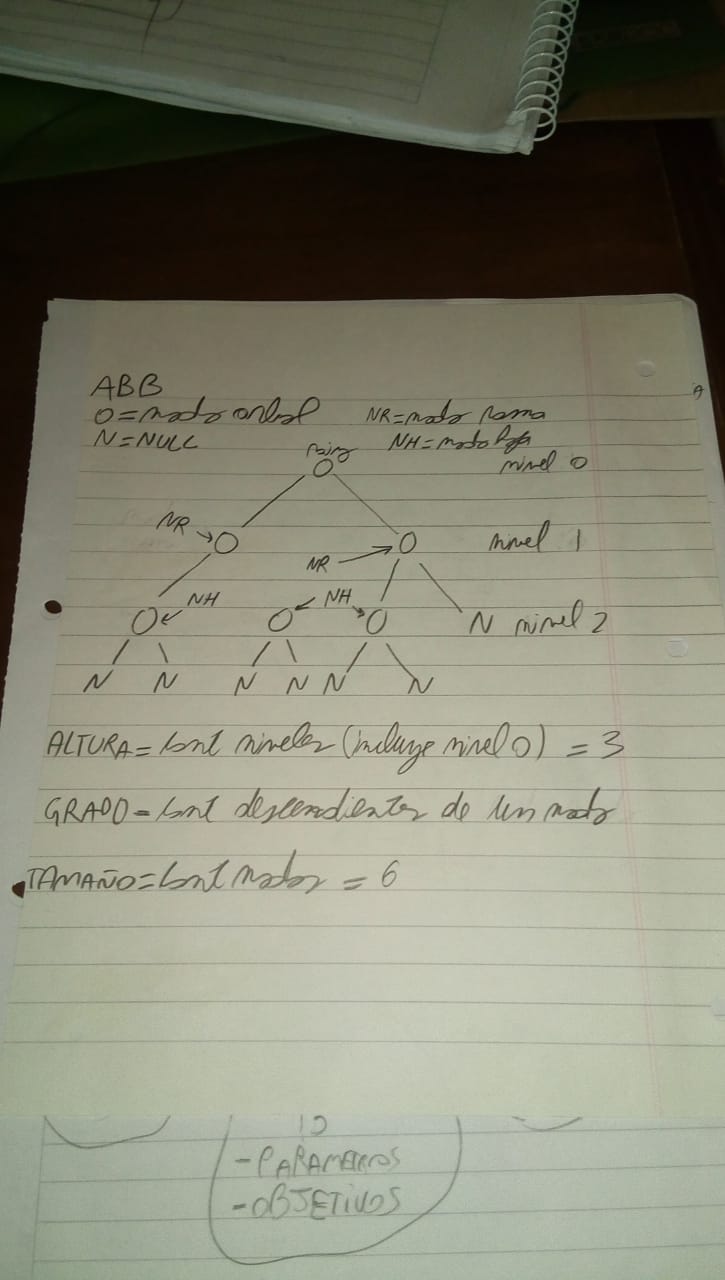 ABB
O=nodo arbol NR=nodo Rama
N=NULL NH=nodo hoja
Raiz
O nivel 0
NR O O nivel 1
NR
O NH O NH O N nivel 2
N N N N N N
ALTURA=Cant niveles (incluye nivel 0) = 3
GRADO=Cant descendientes de un nodo
TAMAÑO=Cant nodos = 6
-PARAMETROS
-OBJETIVOS